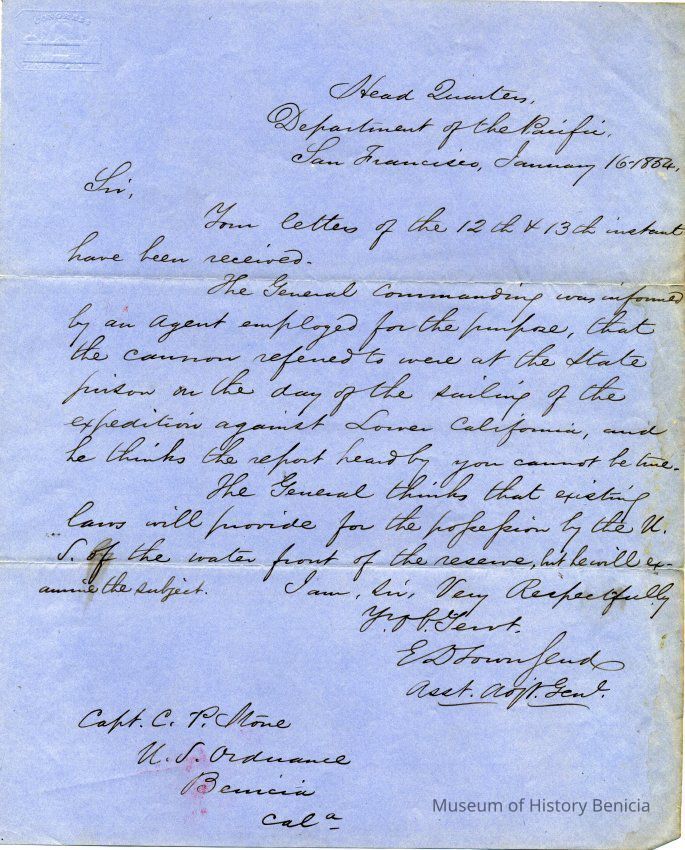 CONGRESS
Head Quarters,
Department of the Pacific.
San Francisco, January 16. 1854.
Sir,
Your letters of the 12th & 13th instant
have been received.
The General Commanding was informed
by an agent employed for the purpose, that
the cannon referred to were at the State
prison on the day of the sailing of the
expedition against Lower California, and
he thinks the report heard by you cannot be true.
The General thinks that existing
laws will provide for the possession by the U.
S. of the water front of the reserve, but he will ex-
amine the subject. I am, Sir, Very Respectfully
Yr. Ob. Servt.
E D Townsend
Asst. Adjt. Genl.
Capt. C. P. Stone
U. S. Ordnance
Benicia
Cala
Museum of History Benicia